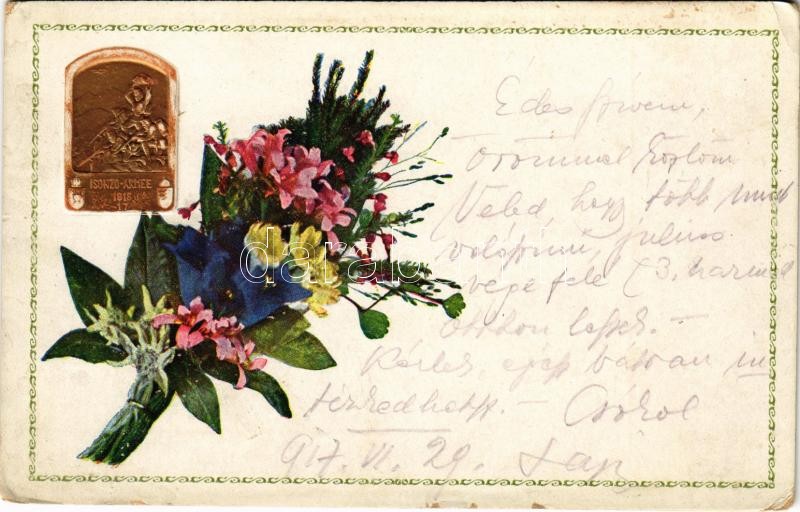 ISONZO-ARMEE
1915
17
Édes szívem,
Örömmel közlöm
Veled, hogy több mint
valószínű, július
vége felé (3. harmad
otthon leszek. –
Kérlek, bátran in-
tézkedhetsz. – Csókol
917. VI. 29.
darabanth